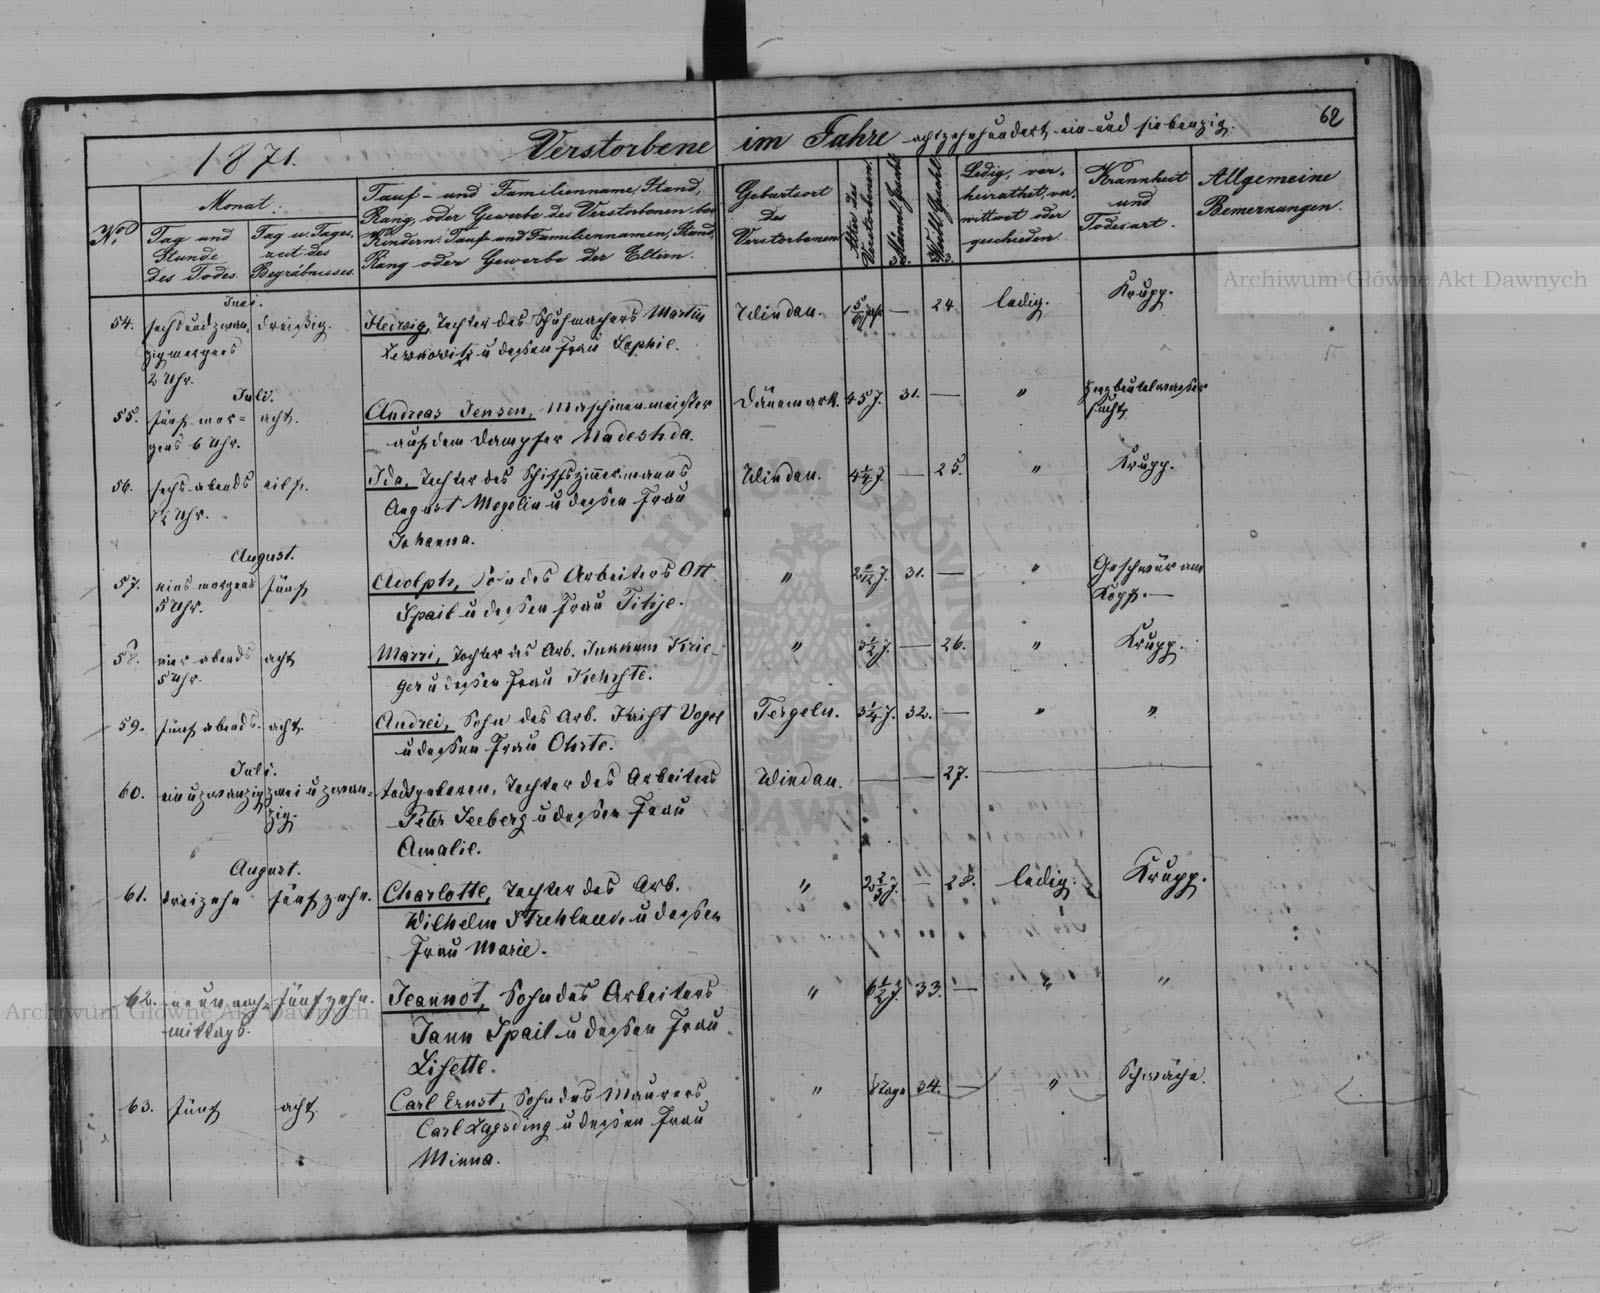 62
1871.
Verstorbene im Jahre achtzehnhundert ein und siebenzig.
No.
Monat:
Tag und
Stunde
des Todes.
Tag u. Tages-
zeit des
Begräbnisses.
Tauf- und Familienname, Stand,
Rang, oder Gewerbe des Verstorbenen bei
Kindern: Tauf und Familiennamen, Stand,
Rang oder Gewerbe der Eltern.
Geburtsort
des
Verstorbenen
Alter des
Verstorbenen.
Männl. Geschl.
Weibl. Geschl.
Ledig, ver-
heirathet, ver-
wittwet oder
geschieden.
Krankheit
und
Todesart.
Allgemeine
Bemerkungen.
Archiwum Główne Akt Dawnych
Juni.
54. sechs und zwan- dreißig. Hedwig, Tochter des Schuhmachers Martin Windau. — 24 ledig. Krupp.
zig morgens u dessen Frau Sophie.
2 Uhr.
Juli.
55. fünf mor- acht. Andreas Jensen, Maschinenmeister Dänemark. 45 J. 31. — " Herzbeutelwasser
gens 6 Uhr. auf dem Dampfer Nadeshda. sucht
56. sechs abends eilf. Ida, Tochter des Schiffszimmermanns Windau. 4¼ J. — 25. " Krupp.
7½ Uhr. August Megolin u dessen Frau
Johanna.
August.
57. eins morgens fünf Adolph, Sohn des Arbeiters Ott " 31. — " Geschwür am
5 Uhr. Spail u dessen Frau Tihje. Kopf. —
58. vier abends acht Marri, Tochter des Arb. Krie- " 3½ J. — 26. " Krupp.
5 Uhr. ger u dessen Frau
59. fünf abends. acht. Andrei, Sohn des Arb. Krist Vogel Tergeln. 3¼ J. 32. — " "
u dessen Frau Ohrte.
Juli.
60. ein u zwanzig zwei u zwan- todtgeboren, Tochter des Arbeiters Windau. — — 27. —
zig. Peter Seeberg u dessen Frau
Amalie.
August.
61. dreizehn fünfzehn. Charlotte, Tochter des Arb. " 2⅔ J. — 28. ledig. Krupp.
Wilhelm u dessen
Frau Marie.
62. neun nach- fünfzehn. Jeannot, Sohn des Arbeiters " 6½ J. 33. — " "
mittags. Jann Spail u dessen Frau
Lisette.
Archiwum Główne Akt Dawnych
63. fünf acht. Carl Ernst, Sohn des Maurers " 8 Tage 34. — " Schwäche.
Carl u dessen Frau
Minna.
ARCHIWUM GŁÓWNE AKT DAWNYCH